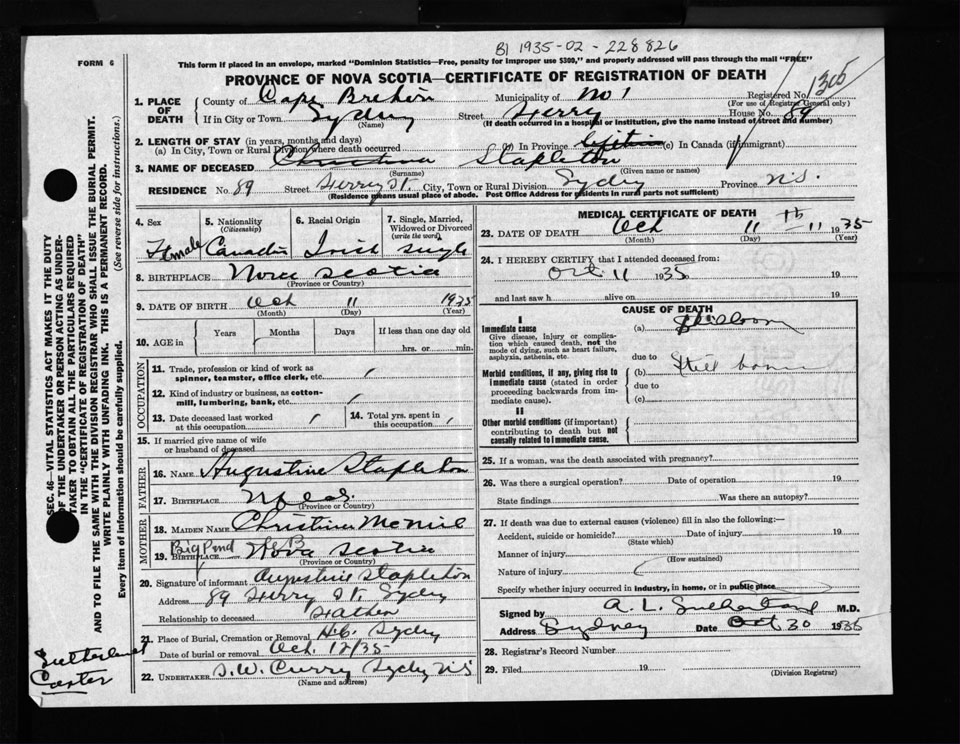 B1 1935-02-228826
FORM 6
This form if placed in an envelope, marked "Dominion Statistics—Free, penalty for improper use $300," and properly addressed will pass through the mail "FREE"
PROVINCE OF NOVA SCOTIA—CERTIFICATE OF REGISTRATION OF DEATH
1305
1. PLACE OF DEATH
County of Cape Breton Municipality of No 1 Registered No.
(For use of Registrar General only)
If in City or Town Sydney Street Ferry House No. 89
(Name) (If death occurred in a hospital or institution, give the name instead of street and number)
2. LENGTH OF STAY (in years, months and days)
(a) In City, Town or Rural Division where death occurred (b) In Province (c) In Canada (if immigrant)
3. NAME OF DECEASED Christina Stapleton
(Surname) (Given name or names)
RESIDENCE No. 89 Street Ferry St. City, Town or Rural Division Sydney Province N.S.
(Residence means usual place of abode. Post Office Address for residents in rural parts not sufficient)
4. Sex
Female
5. Nationality
(Citizenship)
6. Racial Origin
Irish
7. Single, Married, Widowed or Divorced
(write the word)
single
8. BIRTHPLACE Nova Scotia
(Province or Country)
9. DATE OF BIRTH Oct 11 1935
(Month) (Day) (Year)
10. AGE in
Years Months Days If less than one day old
hrs. or min.
OCCUPATION
11. Trade, profession or kind of work as
spinner, teamster, office clerk, etc.
12. Kind of industry or business, as cotton-
mill, lumbering, bank, etc.
13. Date deceased last worked
at this occupation
14. Total yrs. spent in
this occupation
15. If married give name of wife
or husband of deceased
FATHER
16. NAME Augustine Stapleton
17. BIRTHPLACE
(Province or Country)
MOTHER
18. MAIDEN NAME Christina McNeil
Big Pond C B
19. BIRTHPLACE Nova Scotia
(Province or Country)
20. Signature of informant Augustine Stapleton
Address 89 Ferry St. Sydney
Relationship to deceased Father
21. Place of Burial, Cremation or Removal H.C. Sydney
Date of burial or removal Oct. 12/35
22. UNDERTAKER S.W. Curry Sydney N.S
(Name and address)
MEDICAL CERTIFICATE OF DEATH
23. DATE OF DEATH Oct 11 th 11 1935
(Month) (Day) (Year)
24. I HEREBY CERTIFY that I attended deceased from:
Oct 11 1935 19
and last saw h alive on 19
CAUSE OF DEATH
I
Immediate cause
Give disease, injury or complica-
tion which caused death, not the
mode of dying, such as heart failure,
asphyxia, asthenia, etc.
(a)
due to
Morbid conditions, if any, giving rise to
immediate cause (stated in order
proceeding backwards from im-
mediate cause).
(b) Still born
due to
(c)
II
Other morbid conditions (if important)
contributing to death but not
causally related to immediate cause.
25. If a woman, was the death associated with pregnancy?
26. Was there a surgical operation? Date of operation 19
State findings Was there an autopsy?
27. If death was due to external causes (violence) fill in also the following:—
Accident, suicide or homicide? Date of injury 19
(State which)
Manner of injury
(How sustained)
Nature of injury
Specify whether injury occurred in industry, in home, or in public place
Signed by A. L. Sutherland M.D.
Address Sydney Date Oct 30 1935
28. Registrar's Record Number
29. Filed 19
(Division Registrar)
SEC. 46—VITAL STATISTICS ACT MAKES IT THE DUTY
OF THE UNDERTAKER OR PERSON ACTING AS UNDER-
TAKER TO OBTAIN ALL THE PARTICULARS REQUIRED
IN THE "CERTIFICATE OF REGISTRATION OF DEATH"
AND TO FILE THE SAME WITH THE DIVISION REGISTRAR WHO SHALL ISSUE THE BURIAL PERMIT.
WRITE PLAINLY WITH UNFADING INK. THIS IS A PERMANENT RECORD.
Every item of information should be carefully supplied. (See reverse side for instructions.)
Sutherland